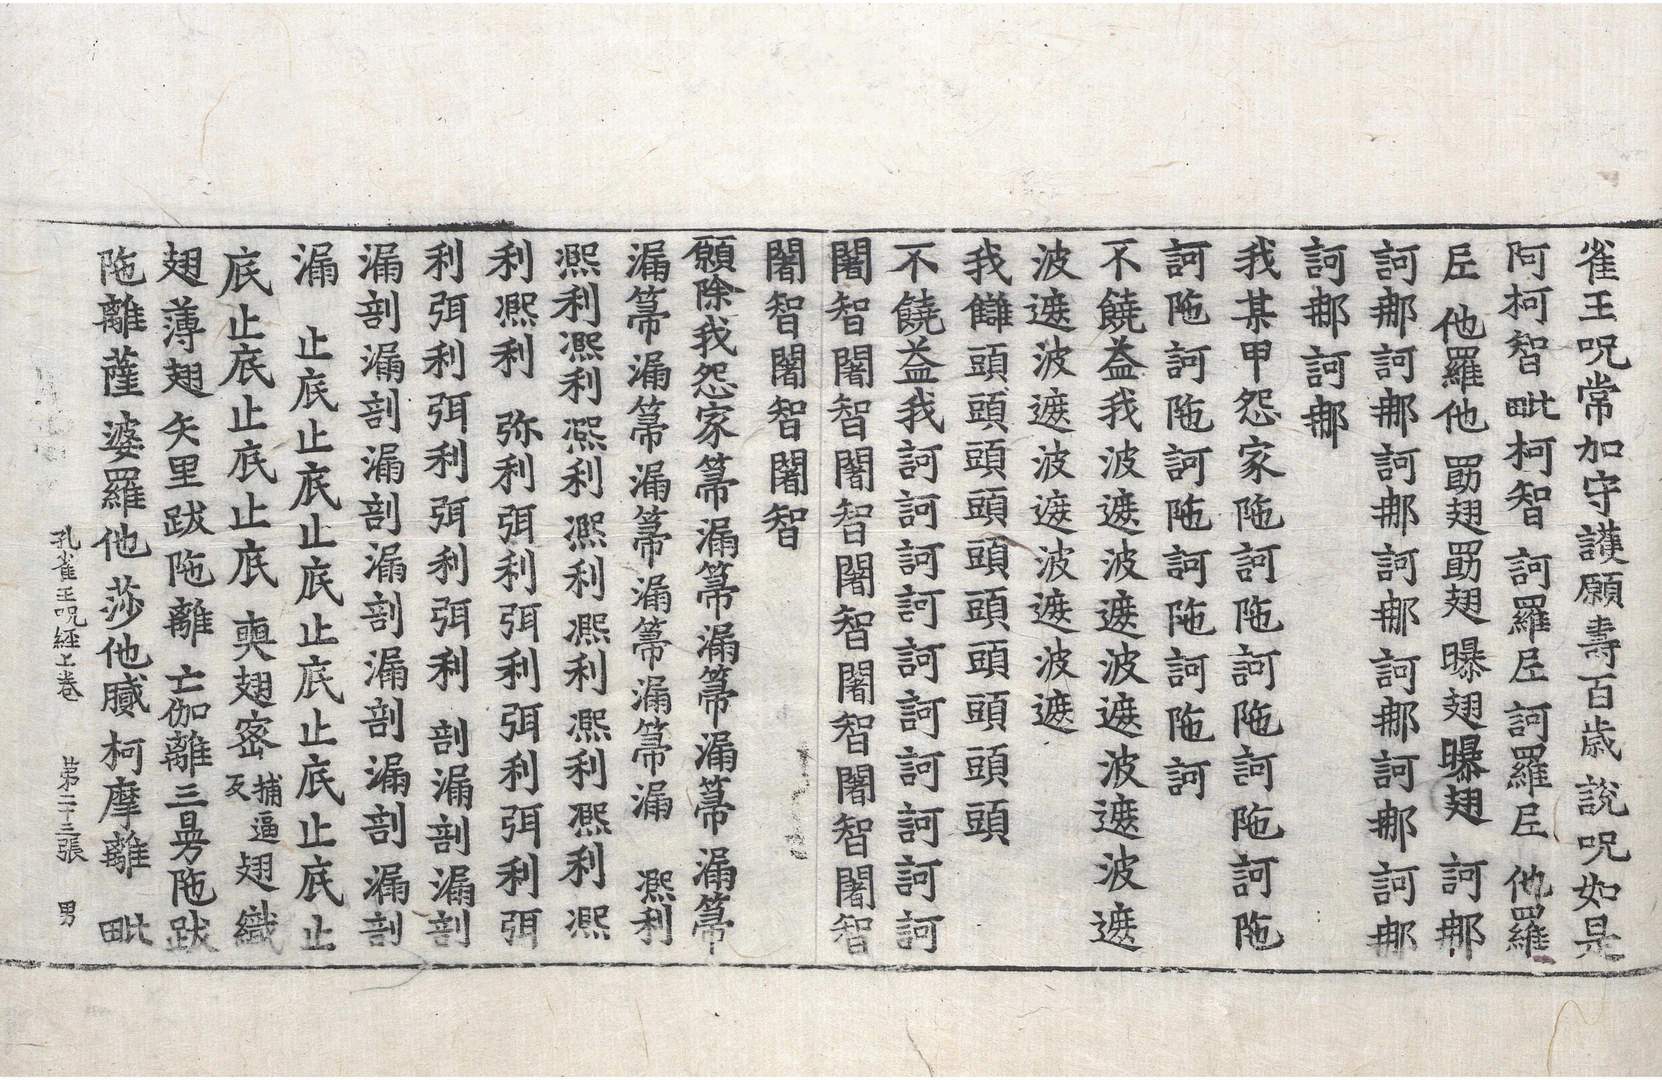 雀王呪常加守護願壽百歲說呪如是
阿柯智 毗柯智 訶羅𡰱 訶羅𡰱 他羅
𡰱 他羅他 勖翅勖翅 曝翅曝翅 訶那
訶那訶那訶那訶那訶那訶那訶那
訶那訶那
我某甲怨家陁訶陁訶陁訶陁訶陁
訶陁訶陁訶陁訶陁訶陁訶
不饒益我波遮波遮波遮波遮波遮
波遮波遮波遮波遮波遮
我讎頭頭頭頭頭頭頭頭頭頭
不饒益我訶訶訶訶訶訶訶訶訶訶
闍智闍智闍智闍智闍智闍智闍智
闍智闍智闍智
願除我怨家箒漏箒漏箒漏箒漏箒
漏箒漏箒漏箒漏箒漏箒漏 凞利
凞利凞利凞利凞利凞利凞利凞利凞
利凞利 弥利弭利弭利弭利弭利弭
利弭利弭利弭利弭利 剖漏剖漏剖
漏剖漏剖漏剖漏剖漏剖漏剖漏剖
漏 止底止底止底止底止底止底止
底止底止底止底 㖶翅密捕逼反翅織
翅薄翅 矢里跋陁離 亡伽離三曼陁跋
陁離薩婆羅他 莎他膩柯摩離 毗
孔雀王呪経上卷 第二十三張 男